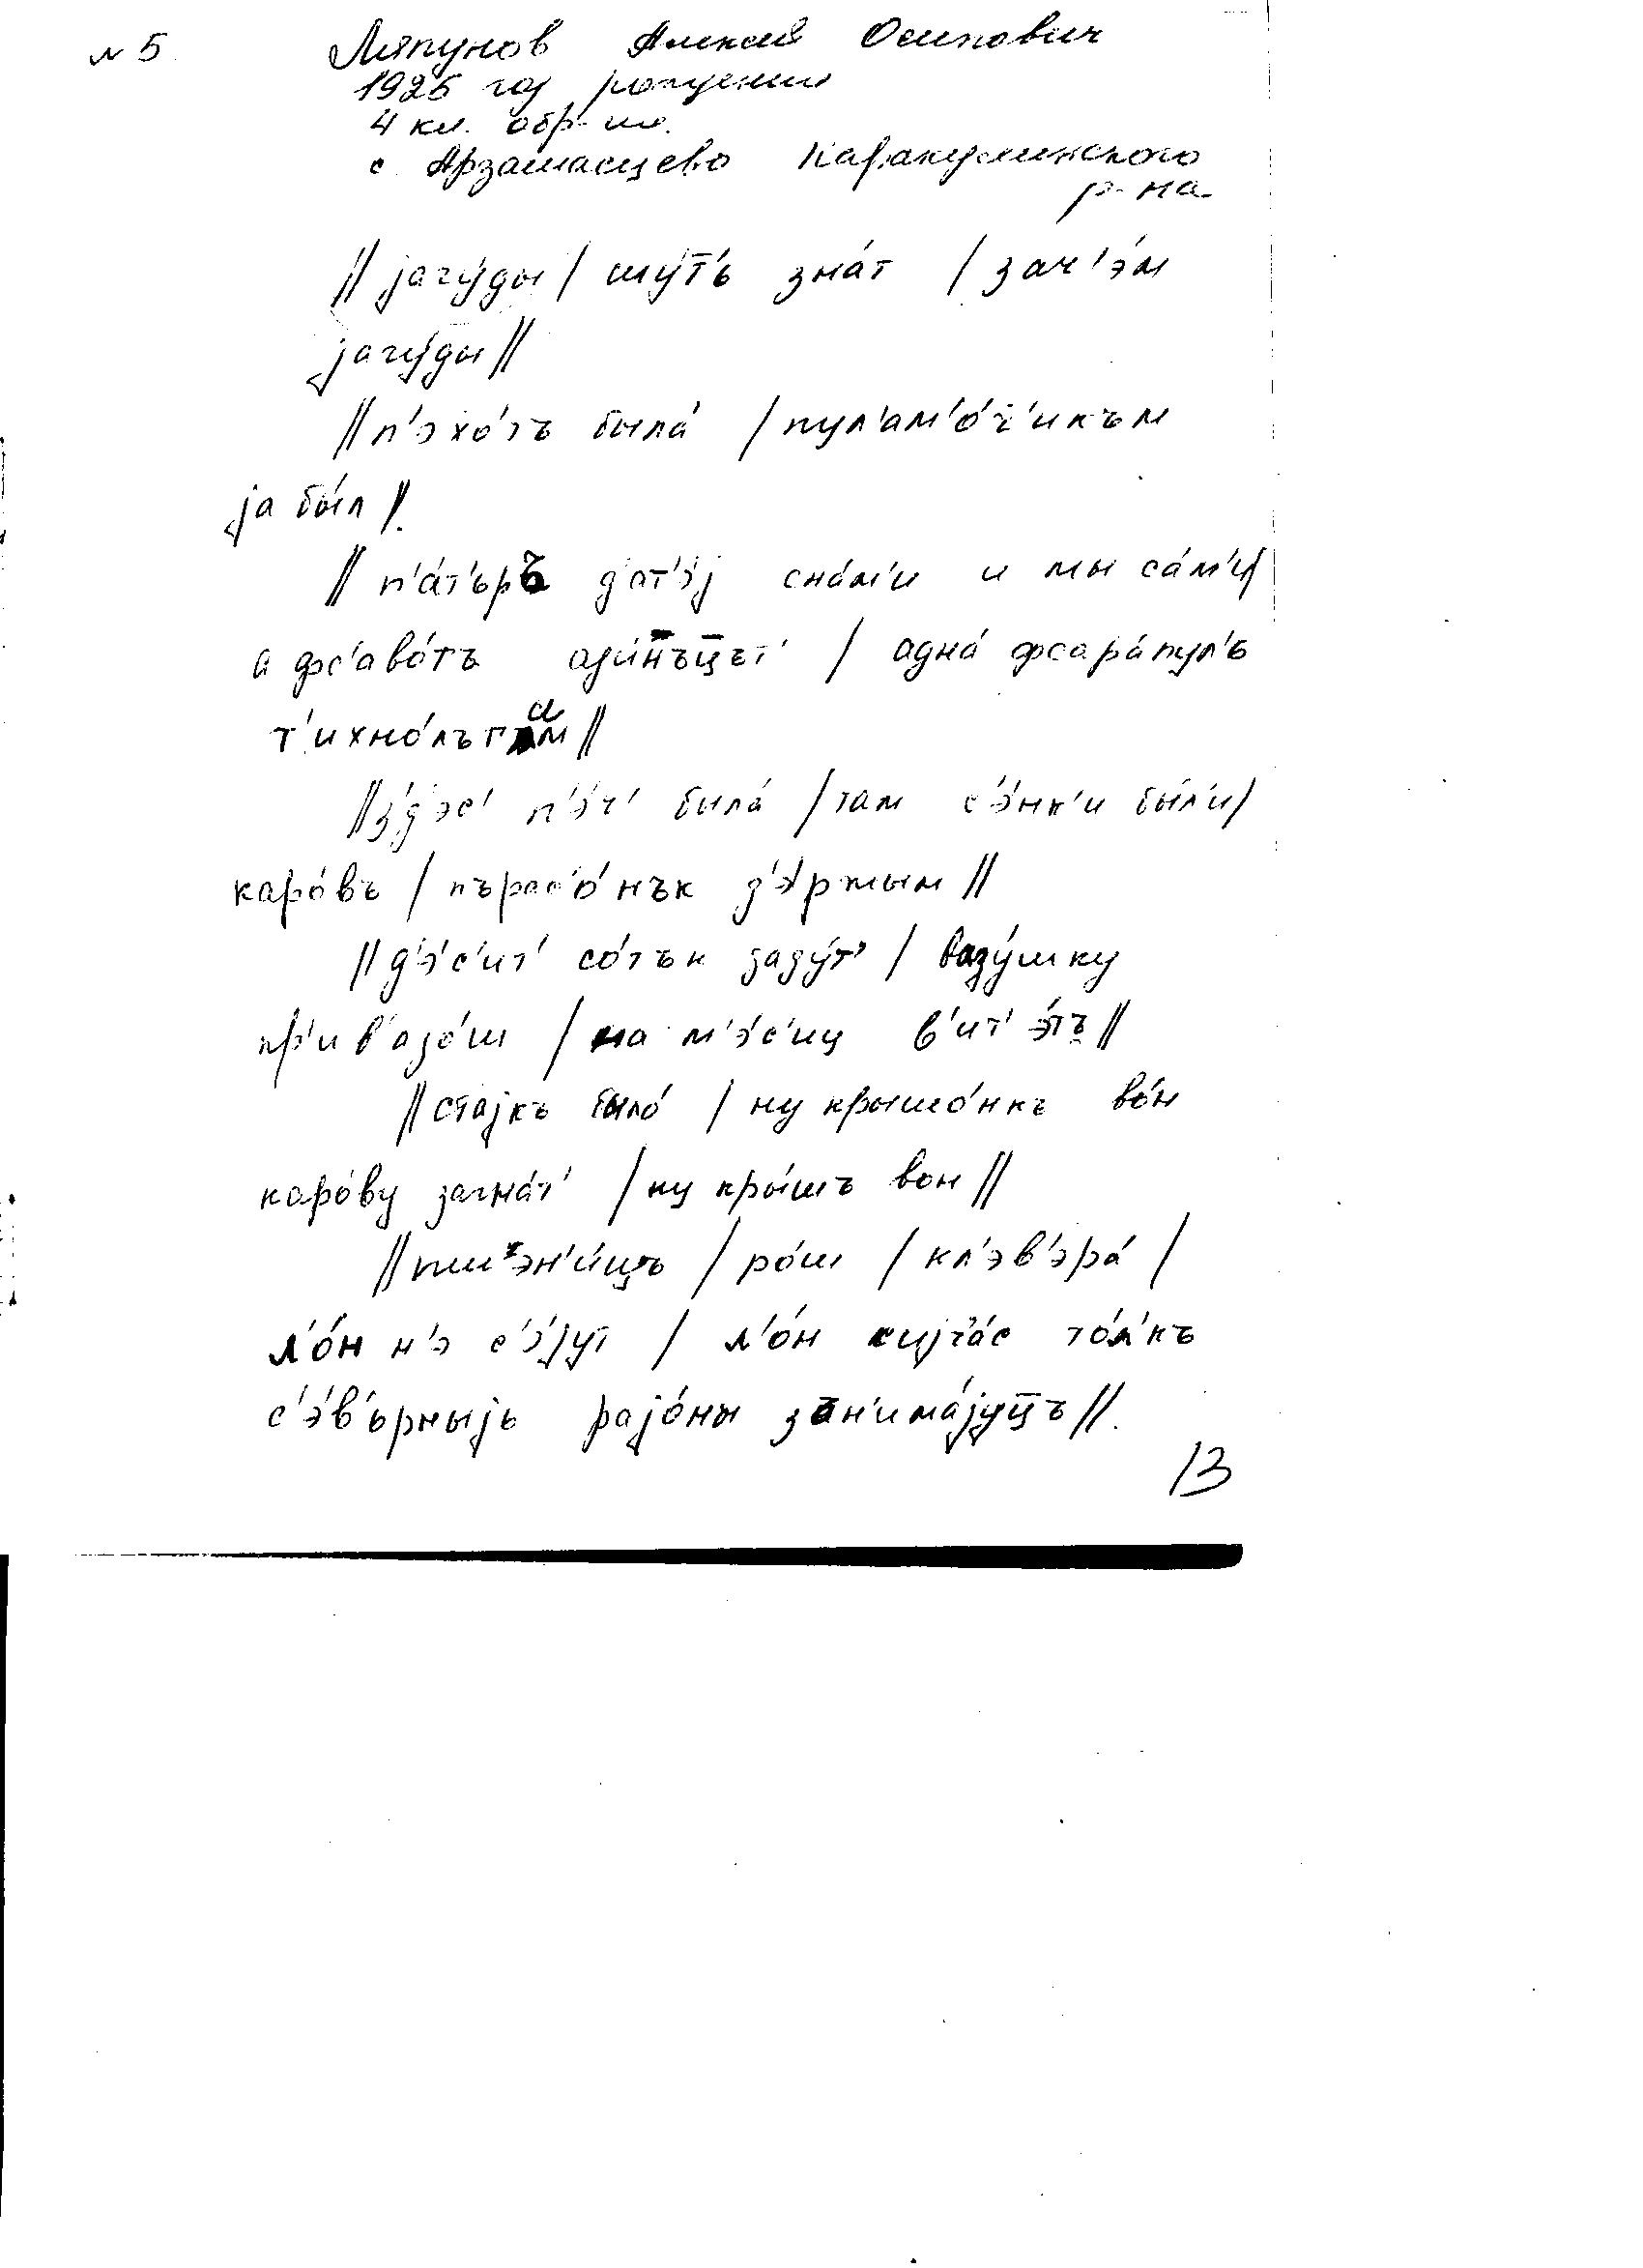 № 5 Ляпунов Алексей Осипович
1925 год рождения
4 кл. обр-ие.
с. Арзамасцево Каракулинского
р-на
// јагу́ды / шут'ь зна́т / зач'э́м
јагу́ды //
// п'эхо́тъ была́ / пул'ам'о́т'ч'икъм
ја бы́л //
// п'а́т'ьръ д'ат'э́ј сна́м'и и мы са́м'и /
а фс'аво́тъ ад'и́нъцът' / адна́ фсара́пул'ь
т'ихно́лъгам //
// з'д'эс' п'э́ч' была́ / там с'э́нк'и бы́л'и /
каро́въ / пърас'о́нък д'э́ржым //
// д'э́с'ит' со́тък даду́т / вазу́шку
пр'ив'аз'о́ш / на м'э́с'иц в'ит' э́тъ //
// стајкъ было́ / ну крышо́нкъ во́н
каро́ву загна́т' / ну кры́шъ вон //
// пшэн'и́цъ / ро́ш / кл'эв'эра́ /
л'о́н н'э с'э́јут / л'о́н сијча́с то́л'къ
с'э́в'ьрныјь рајо́ны зън'има́јуцъ //
13